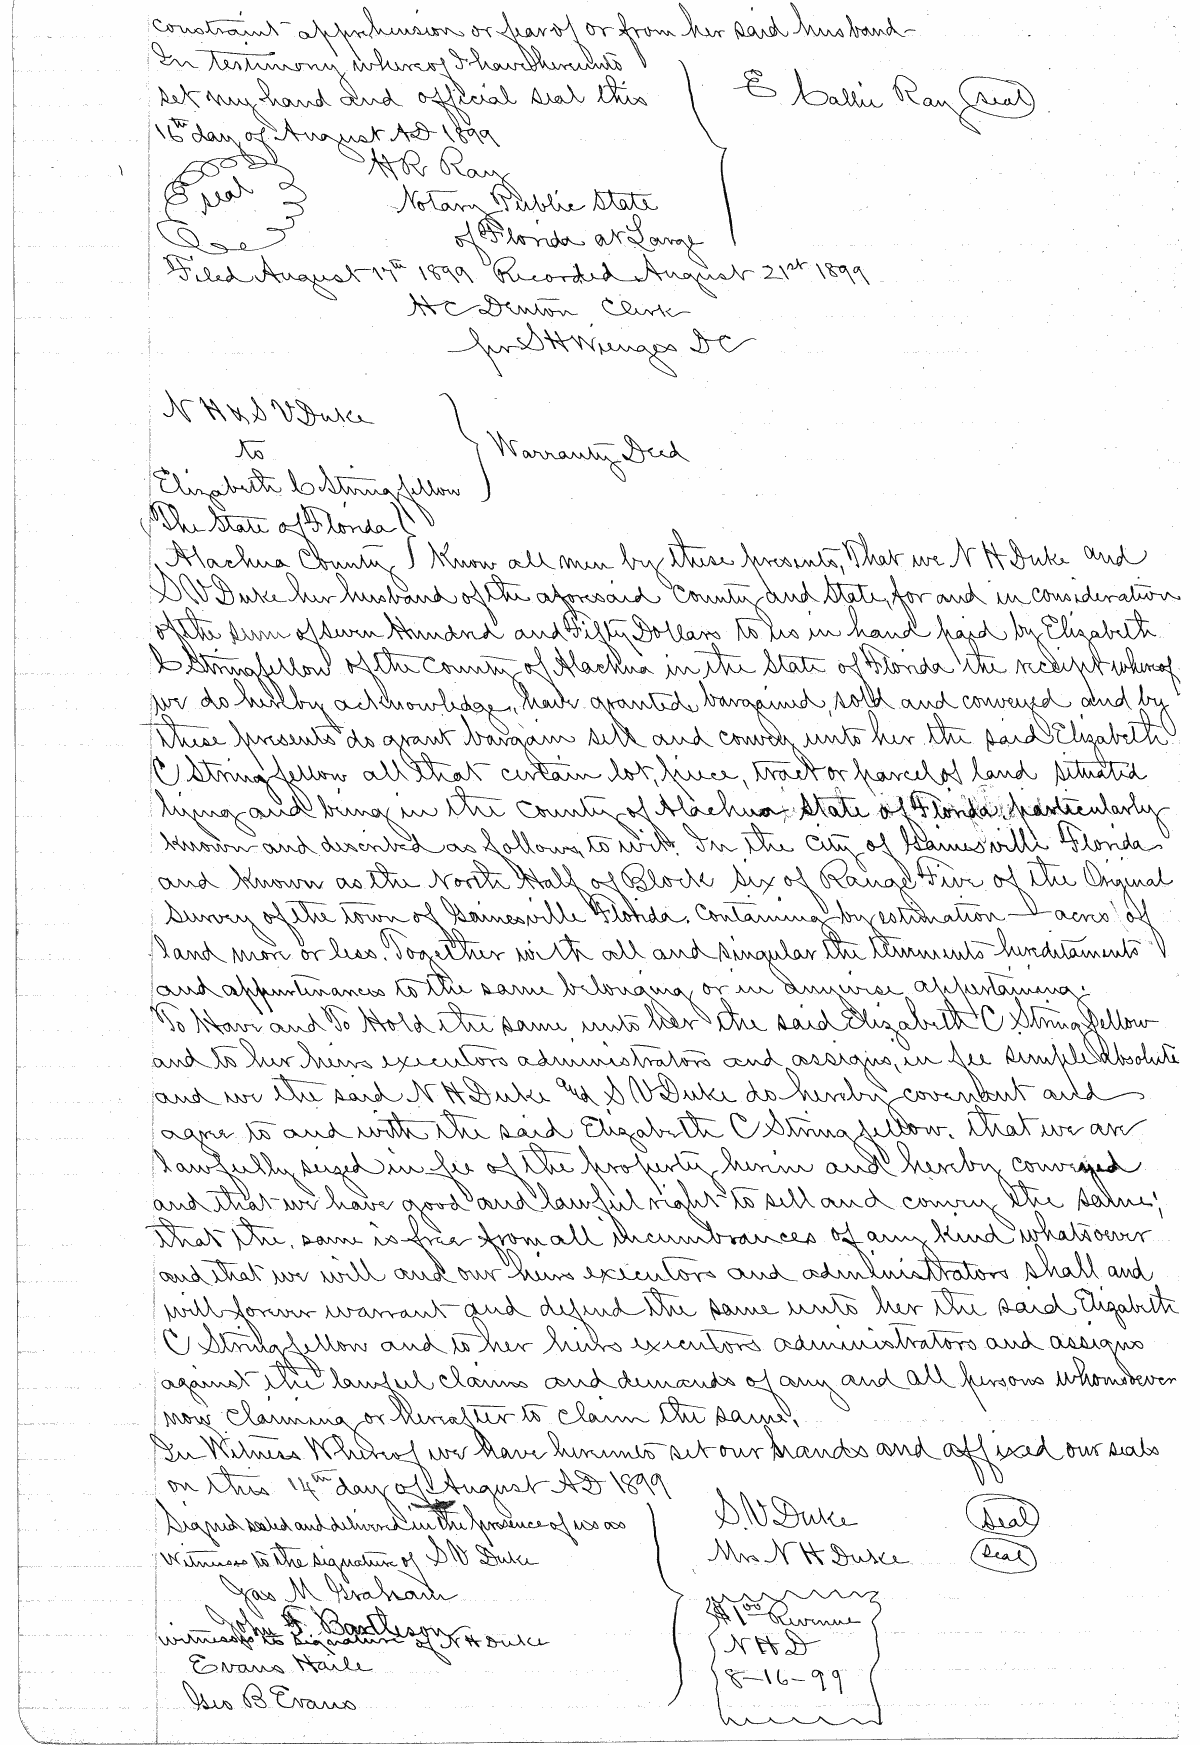 constraint apprehension or fear of or from her said husband
In testimony whereof I have hereunto
set my hand and official seal this
16th day of August AD 1899
E Callie Ray seal
seal
H R Ray
Notary Public State
of Florida at Large
Filed August 17th 1899 Recorded August 21st 1899
H C Denton Clerk
per S H Wienges DC
N H & S V Duke
to
Elizabeth C Stringfellow
Warranty Deed
The State of Florida
Alachua County Know all men by these presents, That we N H Duke and
S V Duke her husband of the aforesaid County and State, for and in consideration
of the sum of seven Hundred and Fifty Dollars to us in hand paid by Elizabeth
C Stringfellow of the County of Alachua in the State of Florida the receipt whereof
we do hereby acknowledge, have granted, bargained, sold and conveyed and by
these presents do grant bargain sell and convey unto her the said Elizabeth
C Stringfellow all that certain lot, piece, tract or parcel of land situated
lying and being in the County of Alachua State of Florida particularly
known and described as follows, to wit. In the City of Gainesville Florida
and known as the North Half of Block Six of Range Five of the Original
Survey of the town of Gainesville Florida. Containing by estimation — acres of
land more or less. Together with all and singular the tenements hereditaments
and appurtenances to the same belonging or in anywise appertaining.
To Have and To Hold the same unto her the said Elizabeth C Stringfellow
and to her heirs executors administrators and assigns, in fee simple Absolute
and we the said N H Duke and S V Duke do hereby covenant and
agree to and with the said Elizabeth C Stringfellow. that we are
lawfully seized in fee of the property herein and hereby conveyed
and that we have good and lawful right to sell and convey the same;
that the same is free from all incumbrances of any kind whatsoever
and that we will and our heirs executors and administrators shall and
will forever warrant and defend the same unto her the said Elizabeth
C Stringfellow and to her heirs executors administrators and assigns
against the lawful claims and demands of any and all persons whomsoever
now claiming or hereafter to claim the same.
In Witness Whereof we have hereunto set our hands and affixed our seals
on this 14th day of August AD 1899
Signed sealed and delivered in the presence of us as
Witness to the signature of S V Duke
Jas M Graham
John F. Bartleson
witnesses to signature of N H Duke
Evans Haile
Geo B Evans
S. V Duke seal
Mrs N H Duke seal
$1.00 Revenue
N H D
8-16-99